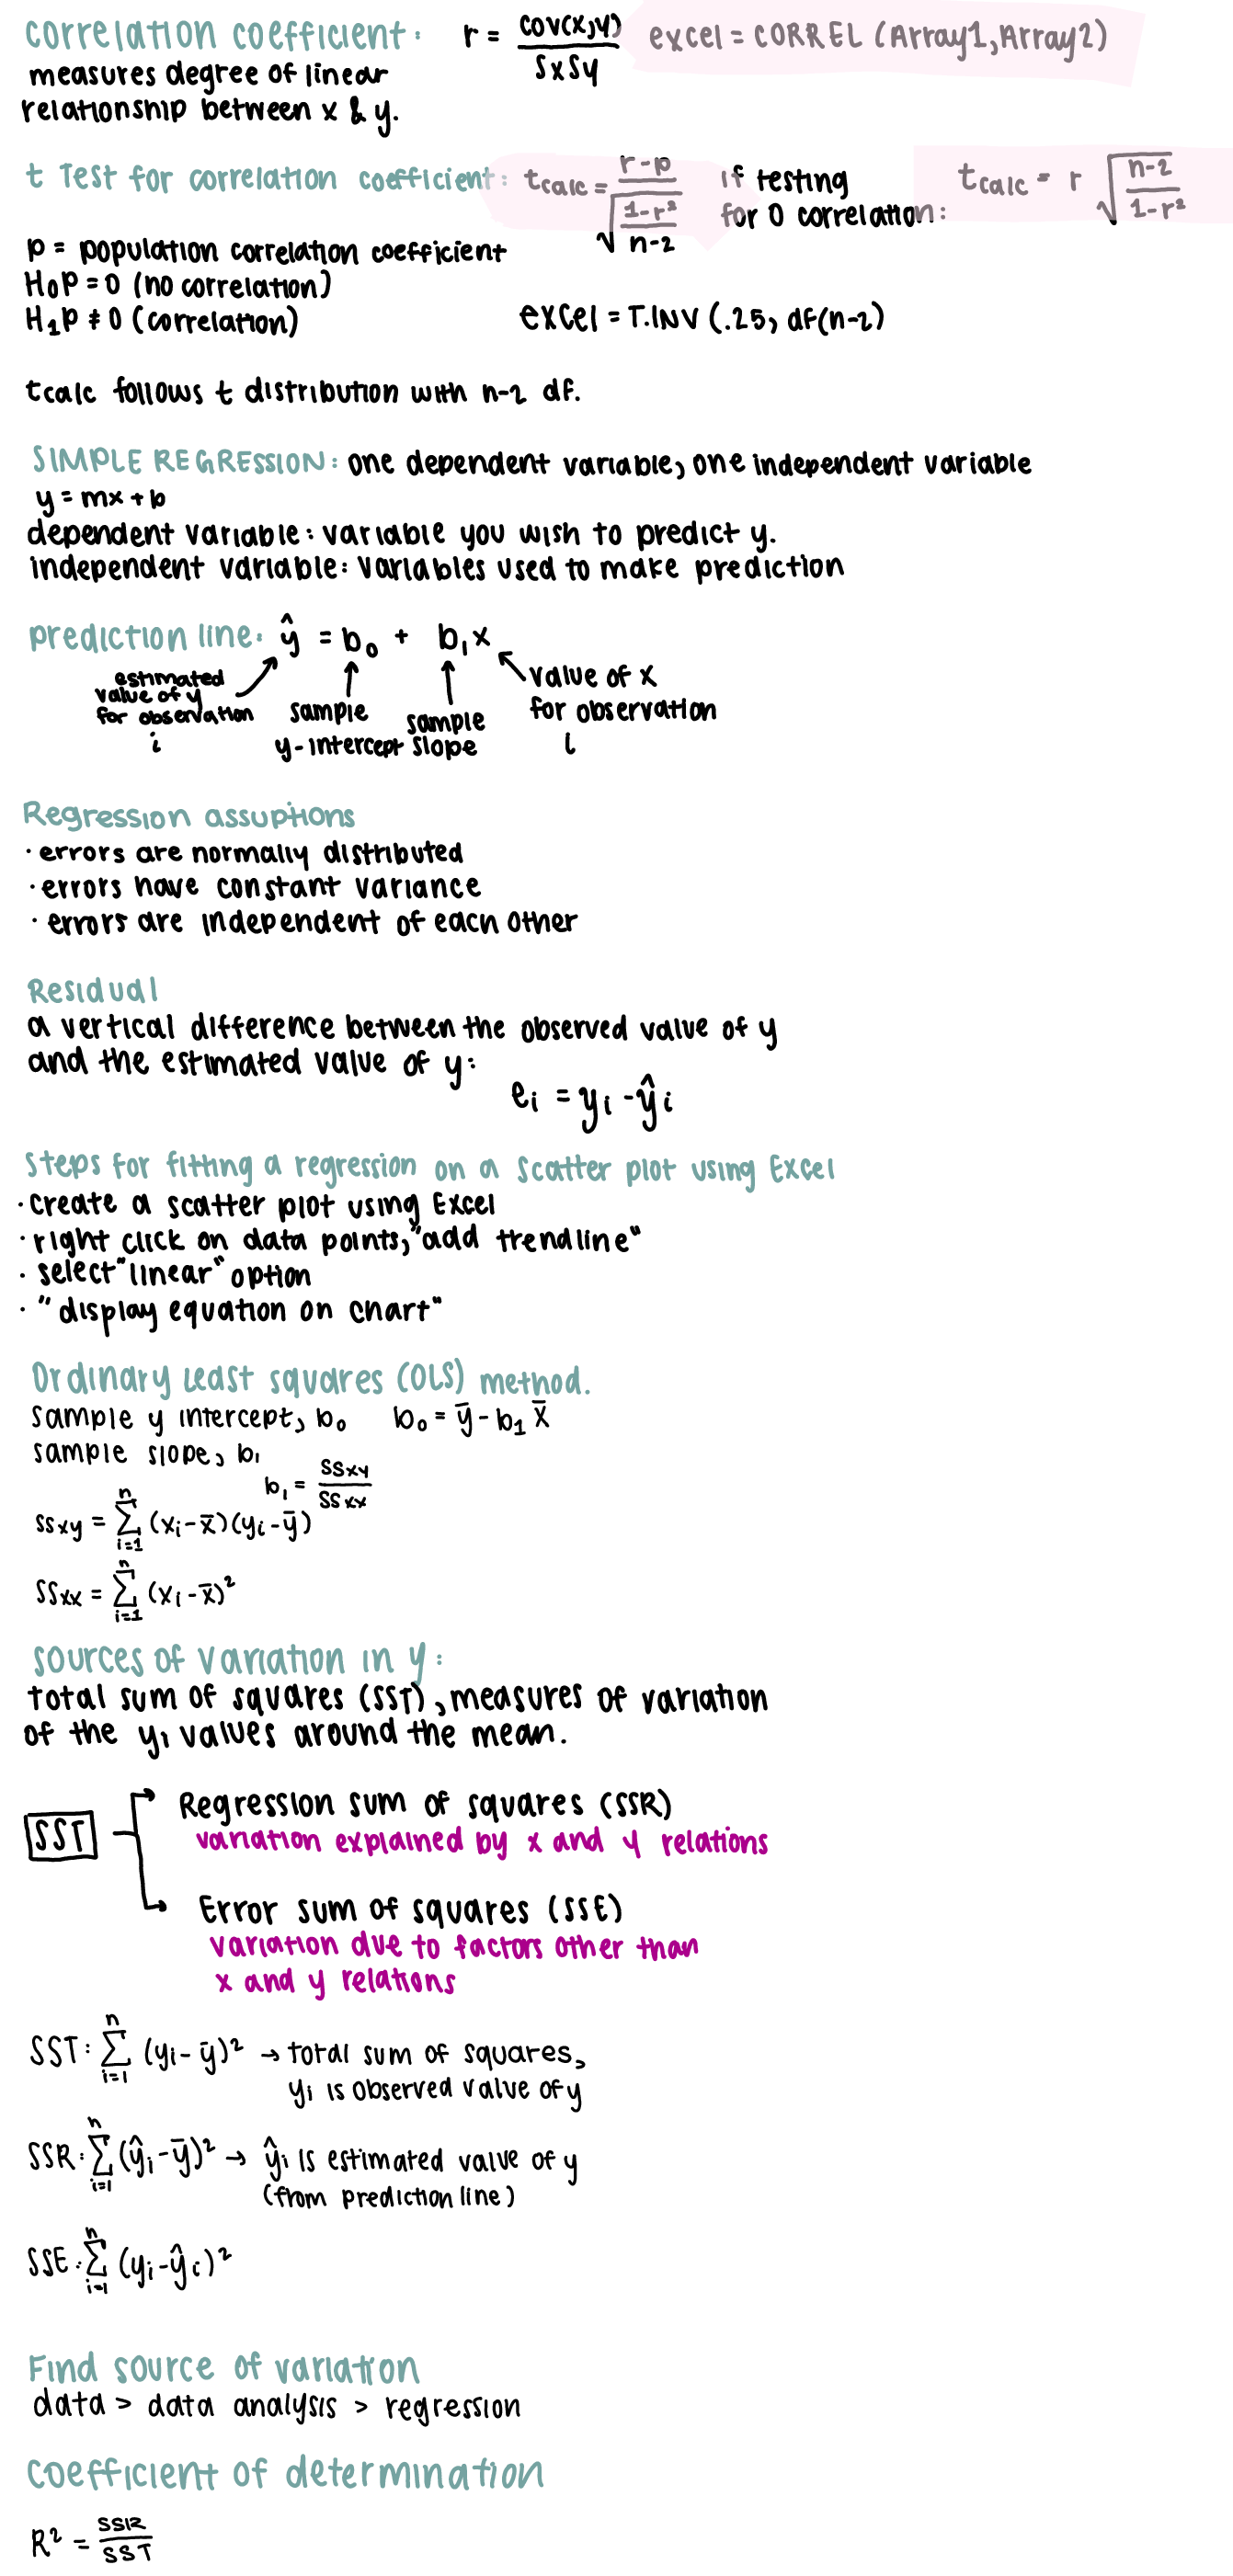 correlation coefficient: r = cov(x,y) / SxSy excel = CORREL (Array1, Array2)
measures degree of linear
relationship between x & y.
t Test for correlation coefficient: tcalc = r-p / √(1-r² / n-2) if testing for 0 correlation: tcalc = r √(n-2 / 1-r²)
p = population correlation coefficient
H0 p = 0 (no correlation)
H1 p ≠ 0 (correlation) excel = T.INV (.25, df(n-2)
tcalc follows t distribution with n-2 df.
SIMPLE REGRESSION: one dependent variable, one independent variable
y = mx + b
dependent variable: variable you wish to predict y.
independent variable: variables used to make prediction
prediction line: ŷ = b₀ + b₁x
estimated value of y for observation i
sample y-intercept
sample slope
value of x for observation i
Regression assuptions
· errors are normally distributed
· errors have constant variance
· errors are independent of each other
Residual
a vertical difference between the observed value of y
and the estimated value of y:
ei = yi - ŷi
Steps for fitting a regression on a scatter plot using Excel
· create a scatter plot using Excel
· right click on data points, "add trendline"
· select "linear" option
· "display equation on chart"
Ordinary Least squares (OLS) method.
sample y intercept, b₀ b₀ = ȳ - b₁ x̄
sample slope, b₁
b₁ = SSxy / SSxx
SSxy = Σ i=1 n (xi - x̄)(yi - ȳ)
SSxx = Σ i=1 n (xi - x̄)²
sources of variation in y:
total sum of squares (SST), measures of variation
of the yi values around the mean.
SST
Regression sum of squares (SSR)
variation explained by x and y relations
Error sum of squares (SSE)
variation due to factors other than
x and y relations
SST: Σ i=1 n (yi - ȳ)² → total sum of squares,
yi is observed value of y
SSR: Σ i=1 n (ŷi - ȳ)² → ŷi is estimated value of y
(from prediction line)
SSE: Σ i=1 n (yi - ŷi)²
Find source of variation
data > data analysis > regression
coefficient of determination
R² = SSR / SST